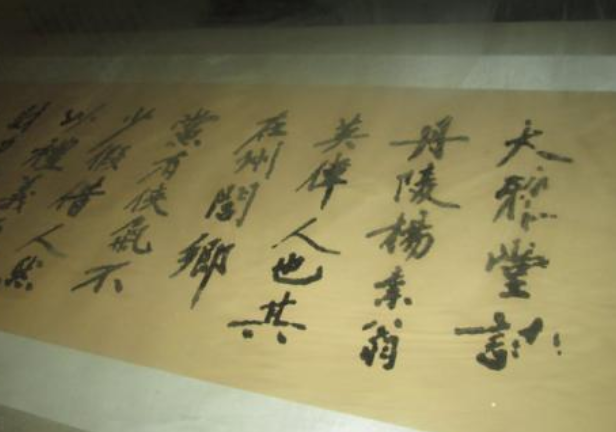 大雅堂記
丹陵楊素翁
英偉人也其
在州閭鄉
黨有俠氣不
少假借人然
以禮義